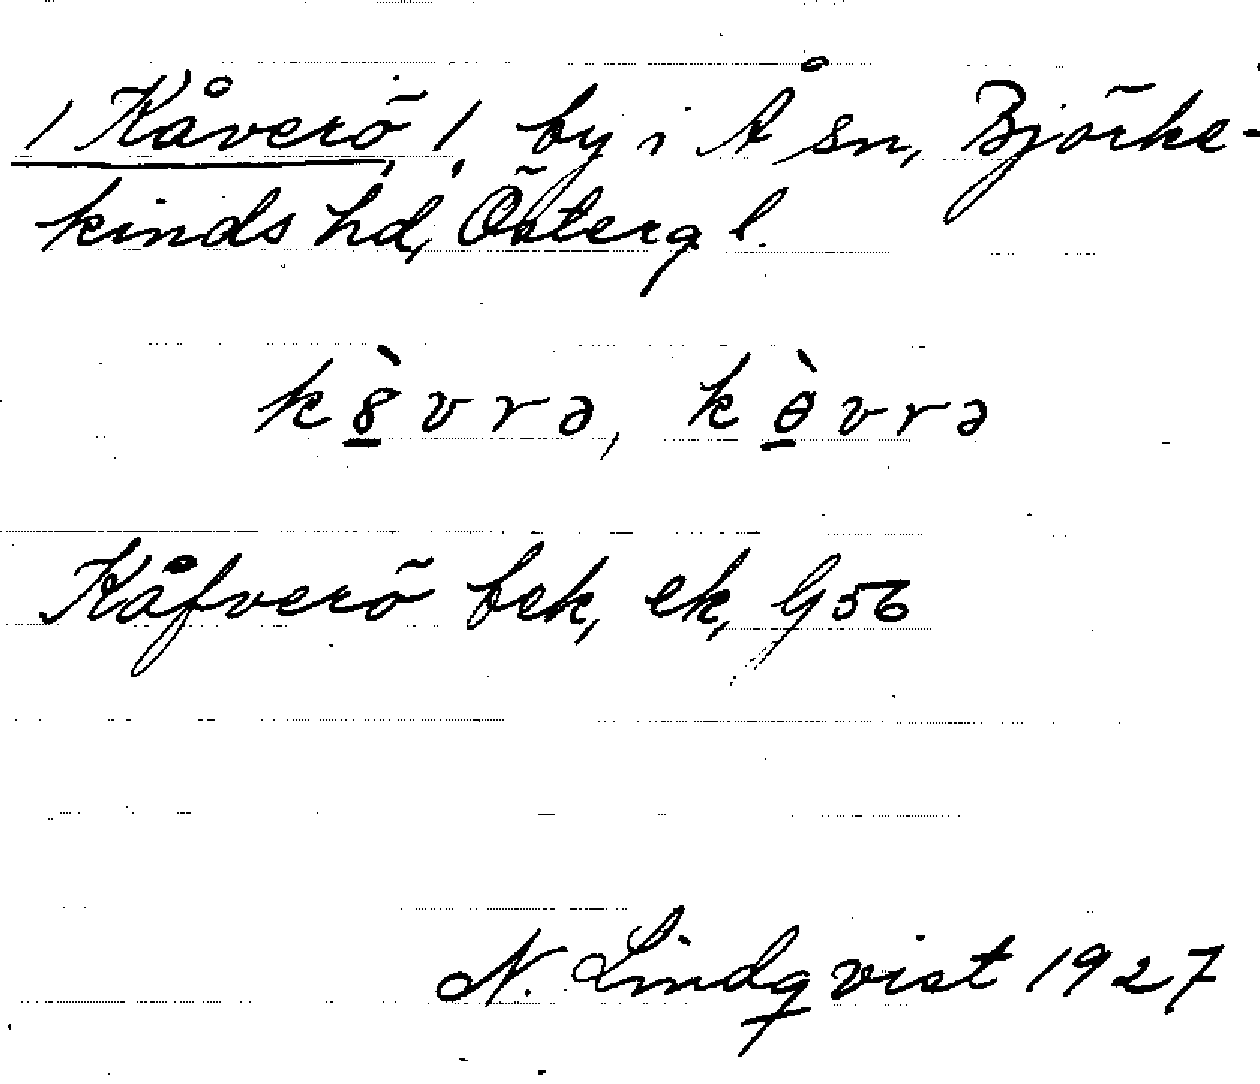 / Kåverö, /, by i Å sn, Björke-
kinds hd, Österg l.
k8̀vrə, kθ̀vrə
Kåfverö bek, ek, G56
N. Lindqvist 1927